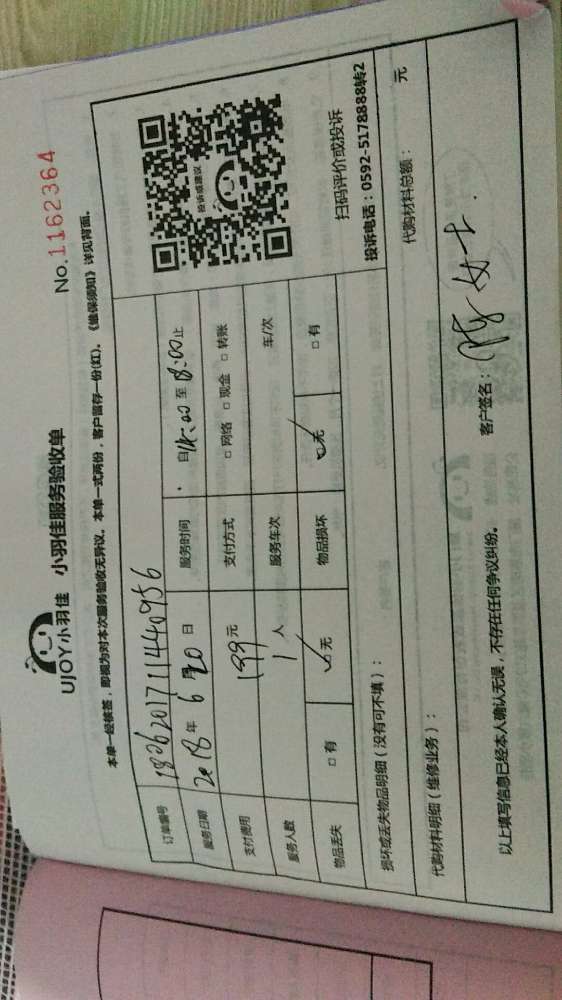 UJOY小羽佳 小羽佳服务验收单 No.1162364
本单一经核签，即视为对本次服务验收无异议。本单一式两份，客户留存一份(红)。《维保须知》详见背面。
订单编号 180620171144 0956
服务日期 2018年6月20日 服务时间 自14:00至18:00止
支付费用 199元 支付方式 □网络 □现金 □转账
服务人数 1人 服务车次 车/次
物品丢失 □有 ☑无 物品损坏 ☑无 □有
投诉或建议
扫码评价或投诉
投诉电话：0592-5178888转2
损坏或丢失物品明细（没有可不填）：
代购材料明细（维修业务）： 代购材料总额： 元
以上填写信息已经本人确认无误，不存在任何争议纠纷。 客户签名：陈女士.